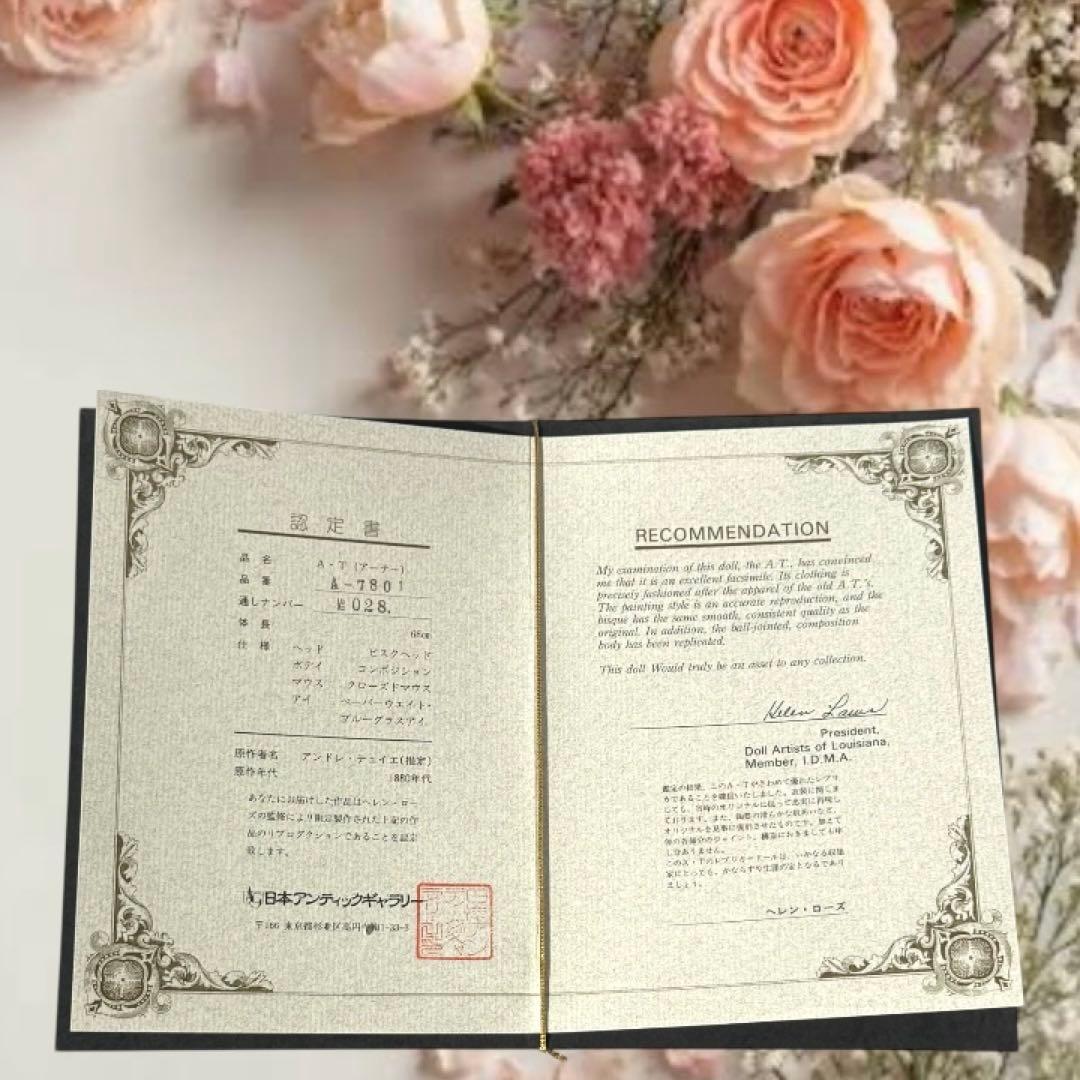 認定書
品名 A・T (アーテー)
品番 A-7801
通しナンバー 028.
体長 68cm
仕様 ヘッド ビスクヘッド
ボディ コンポジション
マウス クローズドマウス
アイ ペーパーウェイト・
ブルーグラスアイ
原作者名 アンドレ・テュイエ(推定)
原作年代 1880年代
あなたにお届けした作品はヘレン・ロー
ズの監修により限定製作された上記の作
品のリプロダクションであることを認定
致します。
日本アンティックギャラリー
〒166 東京都杉並区高円寺 1-33-3
RECOMMENDATION
My examination of this doll, the A.T., has convinced
me that it is an excellent facsimile. Its clothing is
precisely fashioned after the apparel of the old A.T.'s.
The painting style is an accurate reproduction, and the
bisque has the same smooth, consistent quality as the
original. In addition, the ball-jointed, composition
body has been replicated.
This doll Would truly be an asset to any collection.
Helen Laws
President,
Doll Artists of Louisiana,
Member, I.D.M.A.
鑑定の結果、このA・Tがきわめて優れたレプリ
カであることを確信いたしました。衣装に関しま
しても、当時のオリジナルに従って忠実に再現し
ております。また、
オリジナルを見事に復元させたものです。加えて
球の各部分のジョイント、構造におきましても申
し分ありません。
このA・Tのレプリカドールは、いかなる収集
家にとっても、かならずや生涯の宝となるであり
ましょう。
ヘレン・ローズ